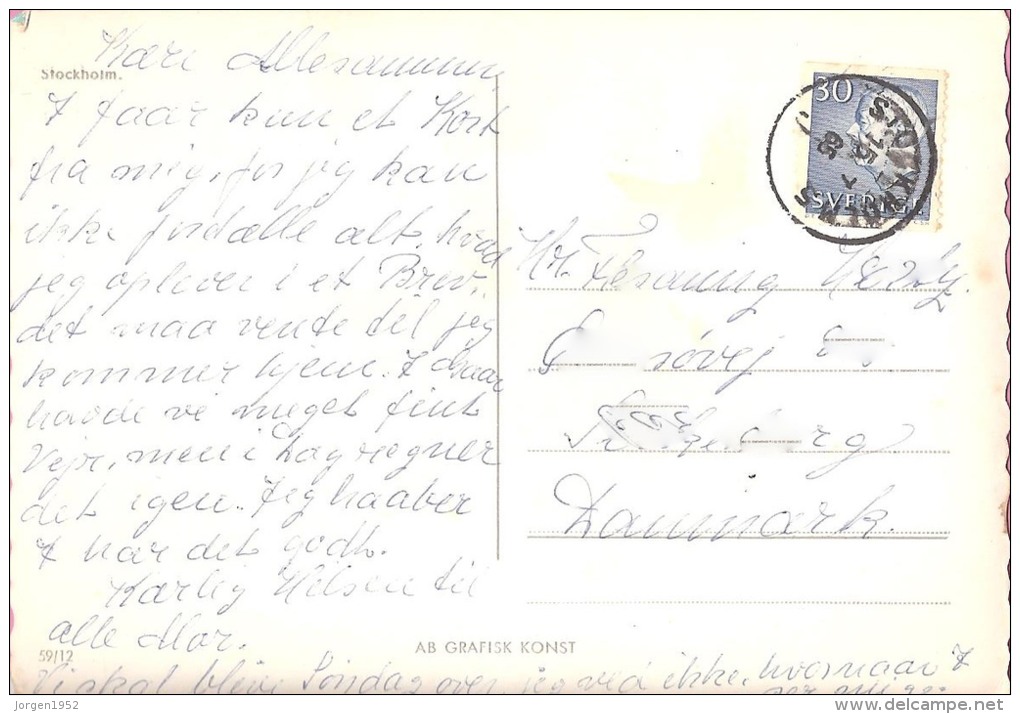 Stockholm.
Kære Allesammen,
I faar kun et Kort
fra mig, for jeg kan
ikke fortælle alt, hvad
jeg oplever i et Brev,
det maa vente til jeg
kommer hjem. I Gaar
havde vi meget fint
Vejr, men i Dag regner
det igen. Jeg haaber
I har det godt.
Kærlig Hilsen til
alle Mor.
59/12
AB GRAFISK KONST
Vi skal blive Søndag over, jeg ved ikke, hvornaar I
ser mig
30
SVERIGE
STOCKHOLM
15
Hr. Flemming
søvej
rg
Danmark.
Jorgen1952